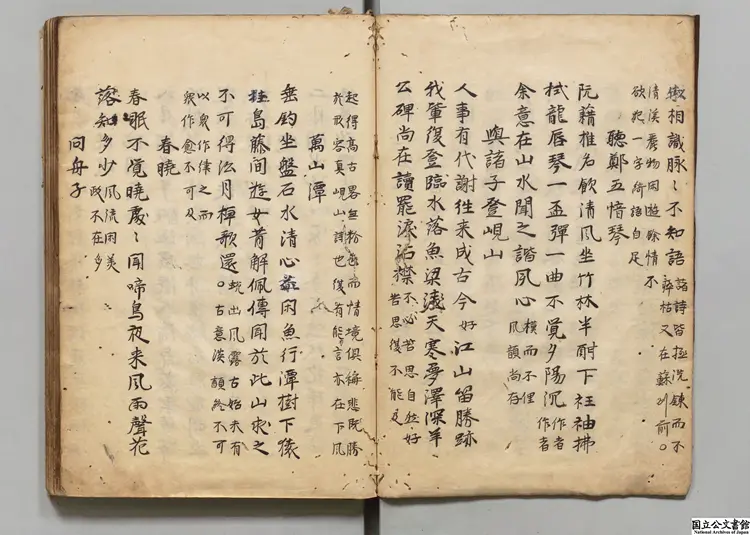 傲相識脉〻不知語
諸詩皆極洗鍊而不
辭枯又在蘇州前。
清溪麗物因遊餘情不
欲犯一字綺語自足
聽鄭五愔琴
阮藉推名飲清風坐竹林半酣下衽袖拂
拭龍唇琴一盃彈一曲不覺夕陽沉作者
余意在山水聞之諧夙心
模而不俚
風韻尚存
與諸子登峴山
人事有代謝往来成古今好江山留勝跡
我輩復登臨水落魚梁淺天寒夢澤深羊
公碑尚在讀罷淚沾襟
不必苦思自然好
苦思復不能及
起得高古略無粉色而情境俱稱悲慨勝
於形容真峴山詩也復有能言亦在下風
萬山潭
垂釣坐盤石水清心益閑魚行潭樹下猿
挂島藤間遊女昔解佩傳聞於此山求之
不可得沿月棹歌還。
蛻出風露古始未有
古意淡韻終不可
以衆作律之而
衆作愈不可及
春曉
春眠不覺曉處〻聞啼鳥夜来風雨聲花
落知多少
風流閑美
政不在多
問舟子
国立公文書館
National Archives of Japan